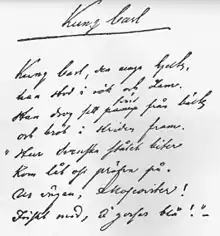 Kung Carl
Kung Carl, den unga hjelte,
han stod i rök och dam.
Han drog sitt svärd från bälte
och bröt i striden fram.
"Hur svenska stålet biter
Kom låt oss pröfva på.
Ur vägen, Moscoviter!
Friskt mod, I gossar blå!"